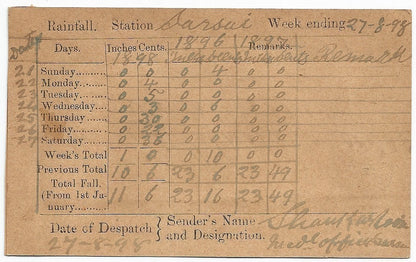 Rainfall. Station Darsui Week ending 27-8-98
Dates Days. Inches Cents. 1896 1897 Remarks.
1898 Inches Cents Inches Cents Remark
21 Sunday......... 0 0 0 4 0 0
22 Monday......... 0 0 0 0 0
23 Tuesday......... 0 5 0 0 0 0
Wednesday 0 3 0 6 0 0
25 Thursday......... 0 30 0 0 0 0
26 Friday......... 0 22 0 0 0 0
27 Saturday......... 0 36 0 0 0 0
Week's Total 1 0 0 10 0 0
Previous Total 10 6 23 6 23 49
Total Fall. (From 1st January......... 11 6 23 16 23 49
Date of Despatch } Sender's Name
27-8-98 } and Designation.